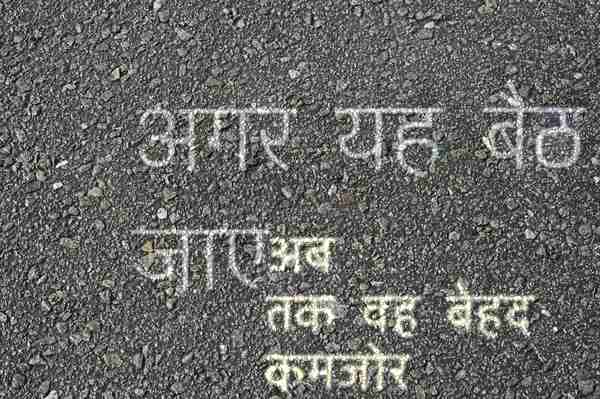 अगर यह बैठ
जाए
अब
तक वह बेहद
कमजोर